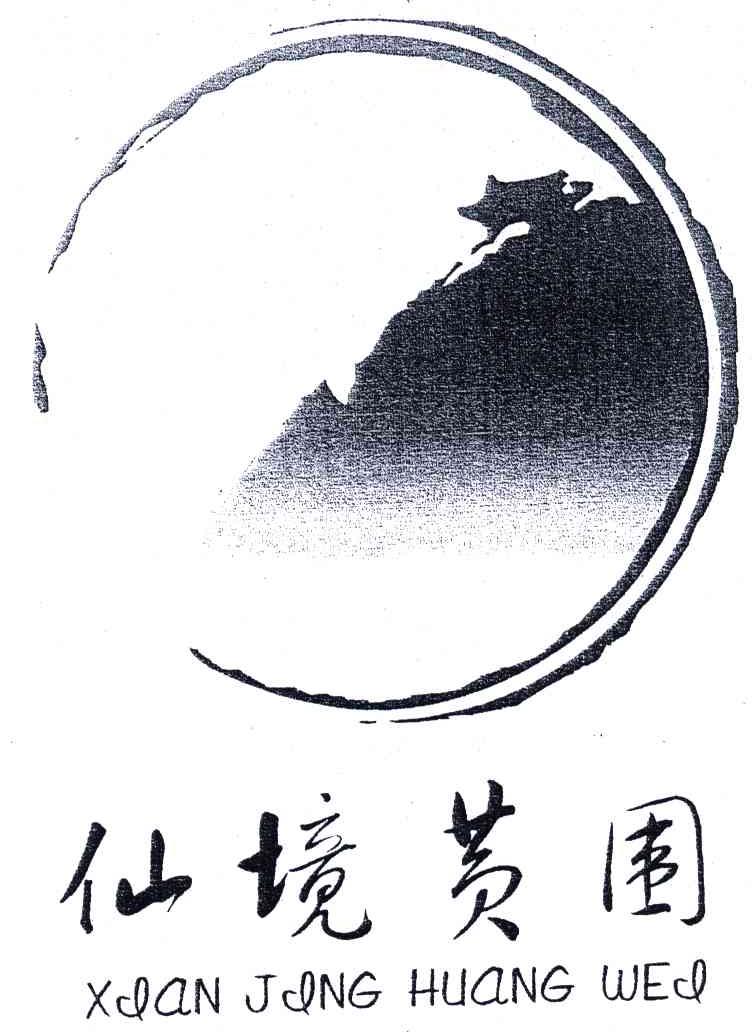 仙境黄围
XIAN JING HUANG WEI